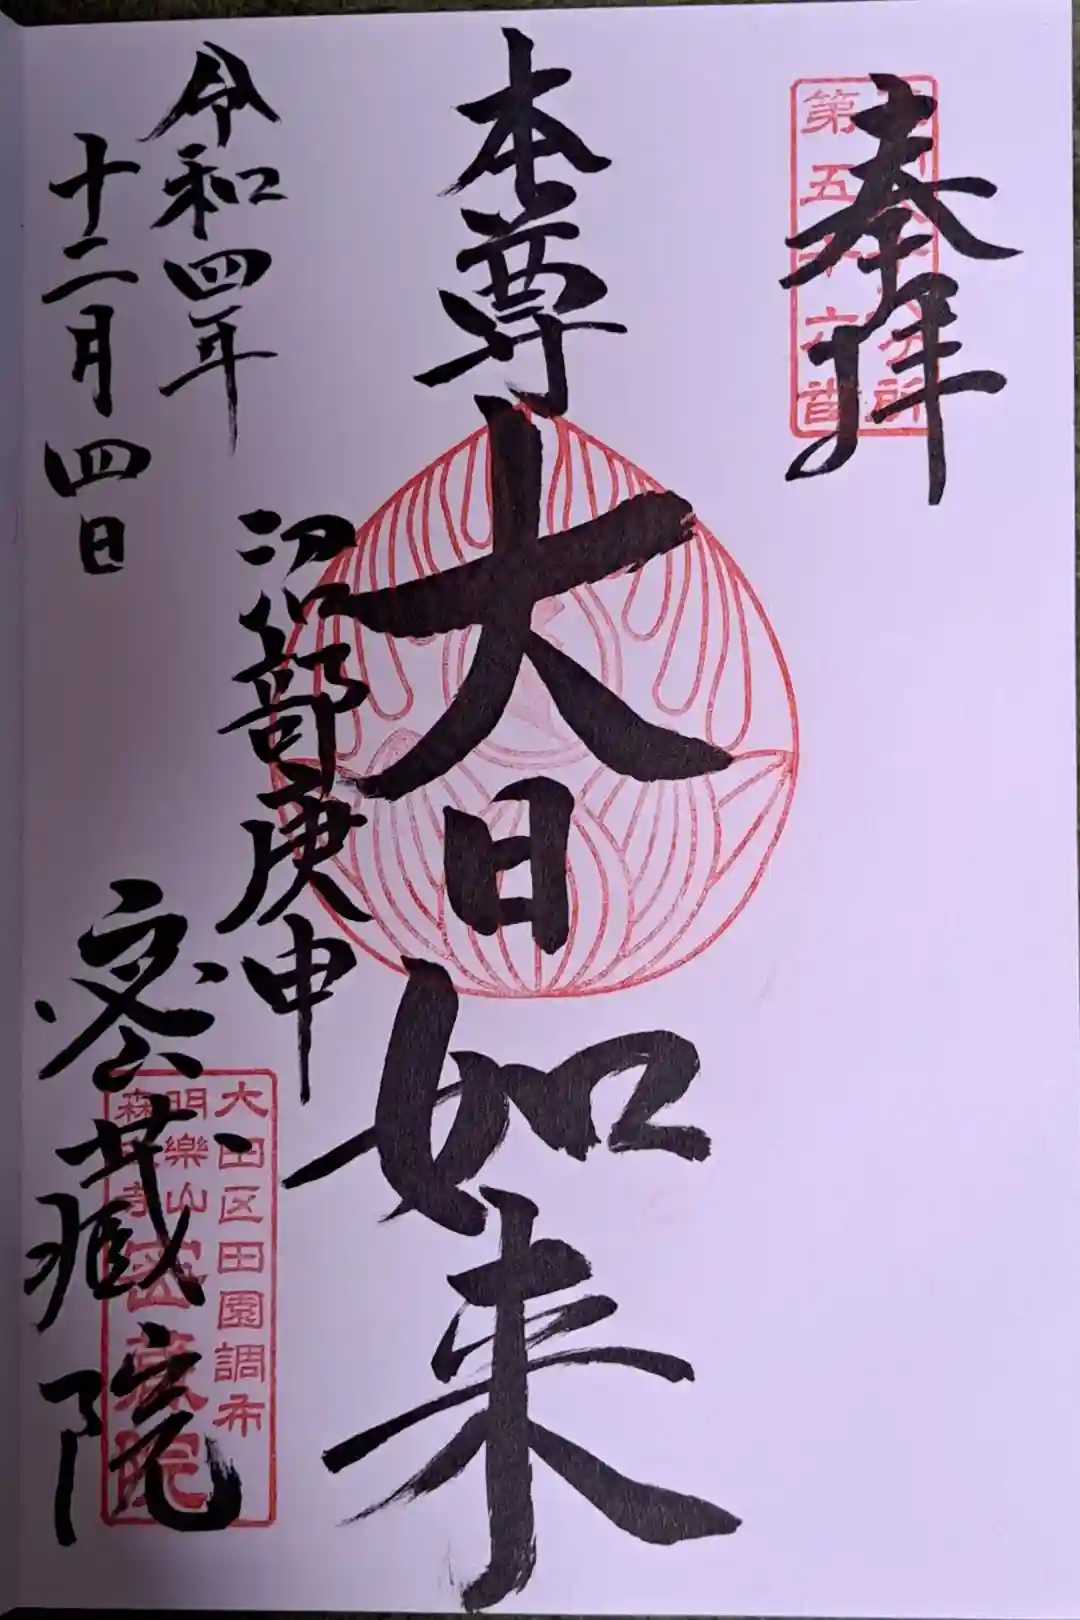 奉拝
第五十六番
本尊
大日如来
沼部庚申
令和四年
十二月四日
密蔵院
大田区田園調布
明樂山
密蔵院